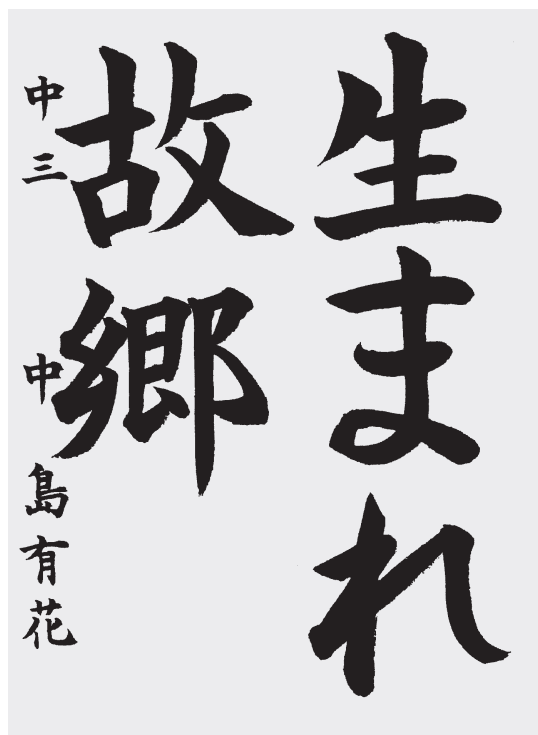 生まれ
故郷
中三 中島有花